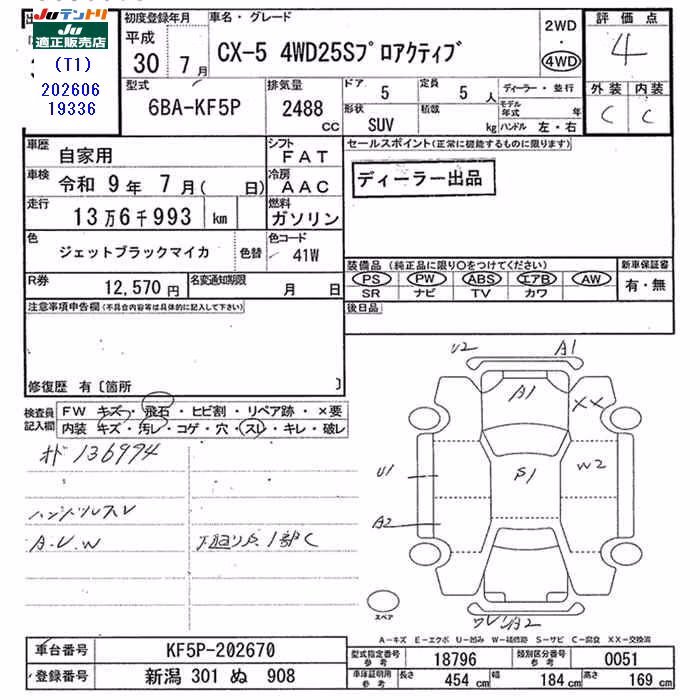 Juテントリ
Ju
適正販売店
(T1)
202606
19336
初度登録年月
平成
30年7月
車名・グレード
CX-5 4WD25Sプロアクティブ
2WD
4WD
評価点
4
外装 内装
C C
型式
6BA-KF5P
排気量
2488
cc
ドア 5
定員 5人
形状
SUV
積載
kg
ディーラー・並行
モデル年式 年
ハンドル 左・右
車歴 自家用
シフト FAT
車検 令和 9年 7月( 日)
冷房 AAC
走行 13万6千993 km
燃料 ガソリン
色 ジェットブラックマイカ 色替
色コード 41W
R券 12,570円
名変通知期限 月 日
セールスポイント(正常に機能するものに限ります)
ディーラー出品
装備品(純正品に限り○をつけてください)
新車保証書
PS PW ABS エアB AW
SR ナビ TV カワ
有・無
後日品
注意事項申告欄(不具合内容等は具体的に記入して下さい)
修復歴 有〔箇所 〕
検査員記入欄
FW キズ・飛石・ヒビ割・リペア跡・×要
内装 キズ・汚レ・コゲ・穴・スレ・キレ・破レ
オド 136994
ハンドルスレ
A.U.W
下廻りS、1部C
U2 A1
A1
XX
U1
S1
W2
A2
A2
スペア
A-キズ E-エクボ U-凹み W-補修跡 S-サビ C-腐食 XX-交換済
車台番号 KF5P-202670
登録番号 新潟 301 ぬ 908
型式指定番号 参考 18796
類別区分番号 参考 0051
車庫証明用 参考
長さ 454 cm
幅 184 cm
高さ 169 cm